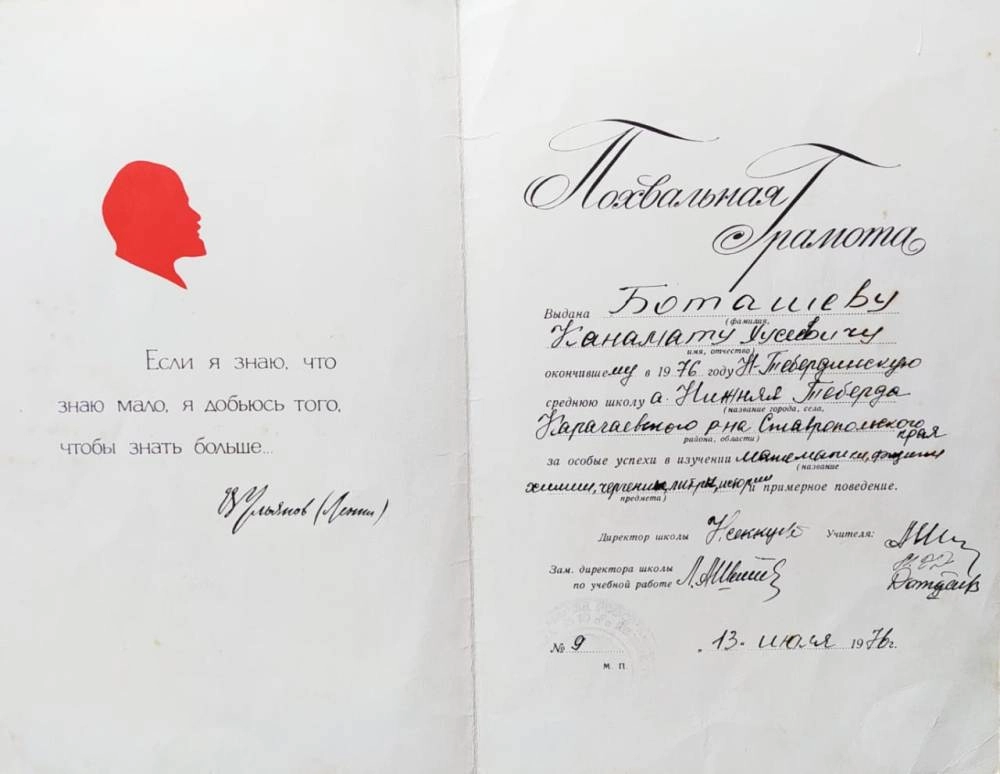 Если я знаю, что
знаю мало, я добьюсь того,
чтобы знать больше...
В Ульянов (Ленин)
Похвальная
Грамота
Выдана Боташеву
(фамилия,
Канамату Нусевичу
имя, отчество)
окончившему в 1976 году Н-Тебердинскую
среднюю школу а. Нижняя Теберда
(название города, села,
Карачаевского р-на Ставропольского края
района, области)
за особые успехи в изучении математики, физики
(название
химии, черчении, литры, истории и примерное поведение.
предмета)
Директор школы Учителя:
Зам. директора школы
по учебной работе
№ 9 13 июля 1976 г.
М. П.